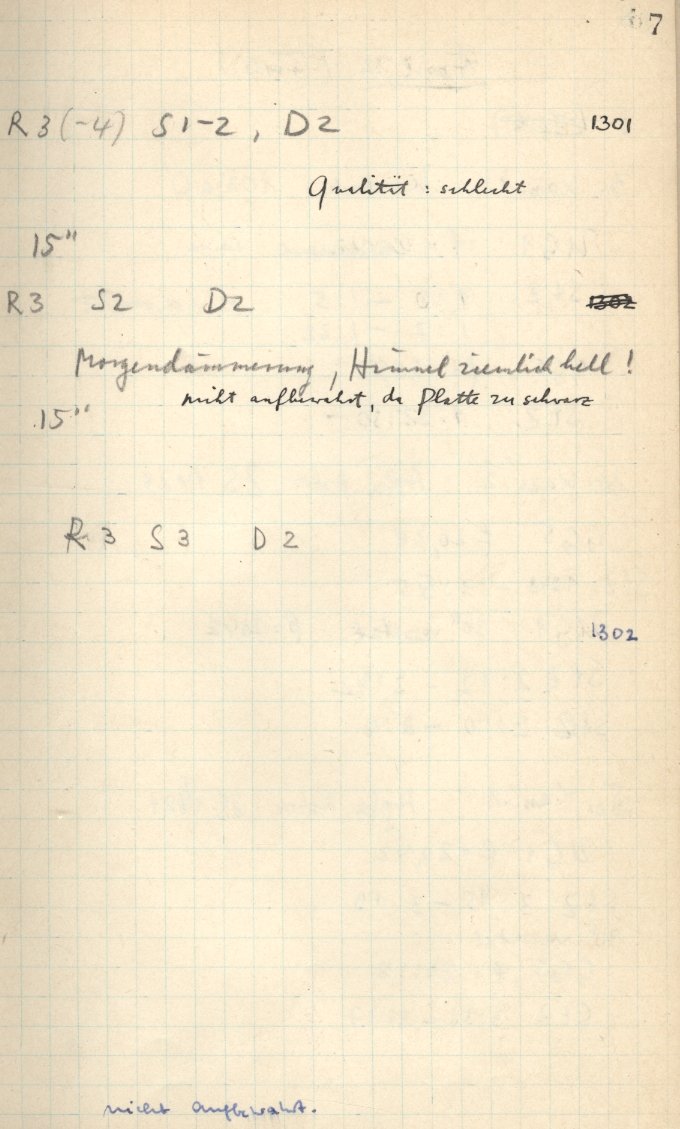 67
R3(-4) S1-2, D2 1301
Qualität: schlecht
15"
R3 S2 D2 1302
Morgendämmerung, Himmel ziemlich hell!
nicht aufbewahrt, da Platte zu schwarz
15"
R3 S3 D2
1302
nicht aufbewahrt.